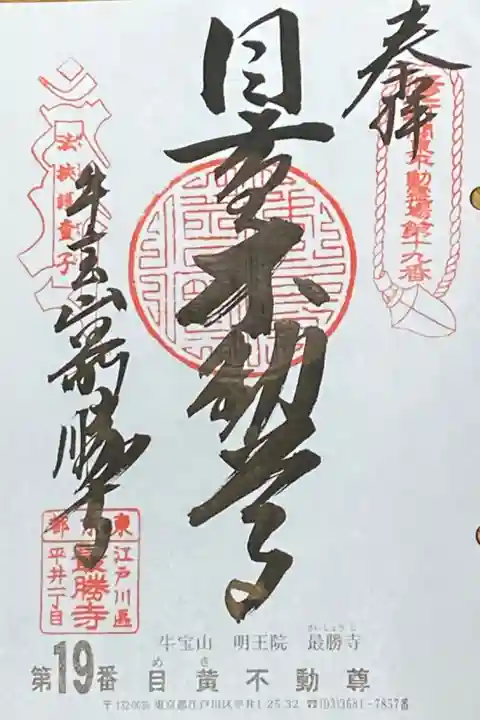 奉拝
関東不動霊場第十九番
目黄不動尊
法挟護童子
牛宝山最勝寺
東京都
江戸川區
平井一丁目
最勝寺
牛宝山 明王院 最勝寺
さいしょうじ
第19番 目黄不動尊
めき
東京都江戸川区平井1-25-32 ☎(03)3681-7857番